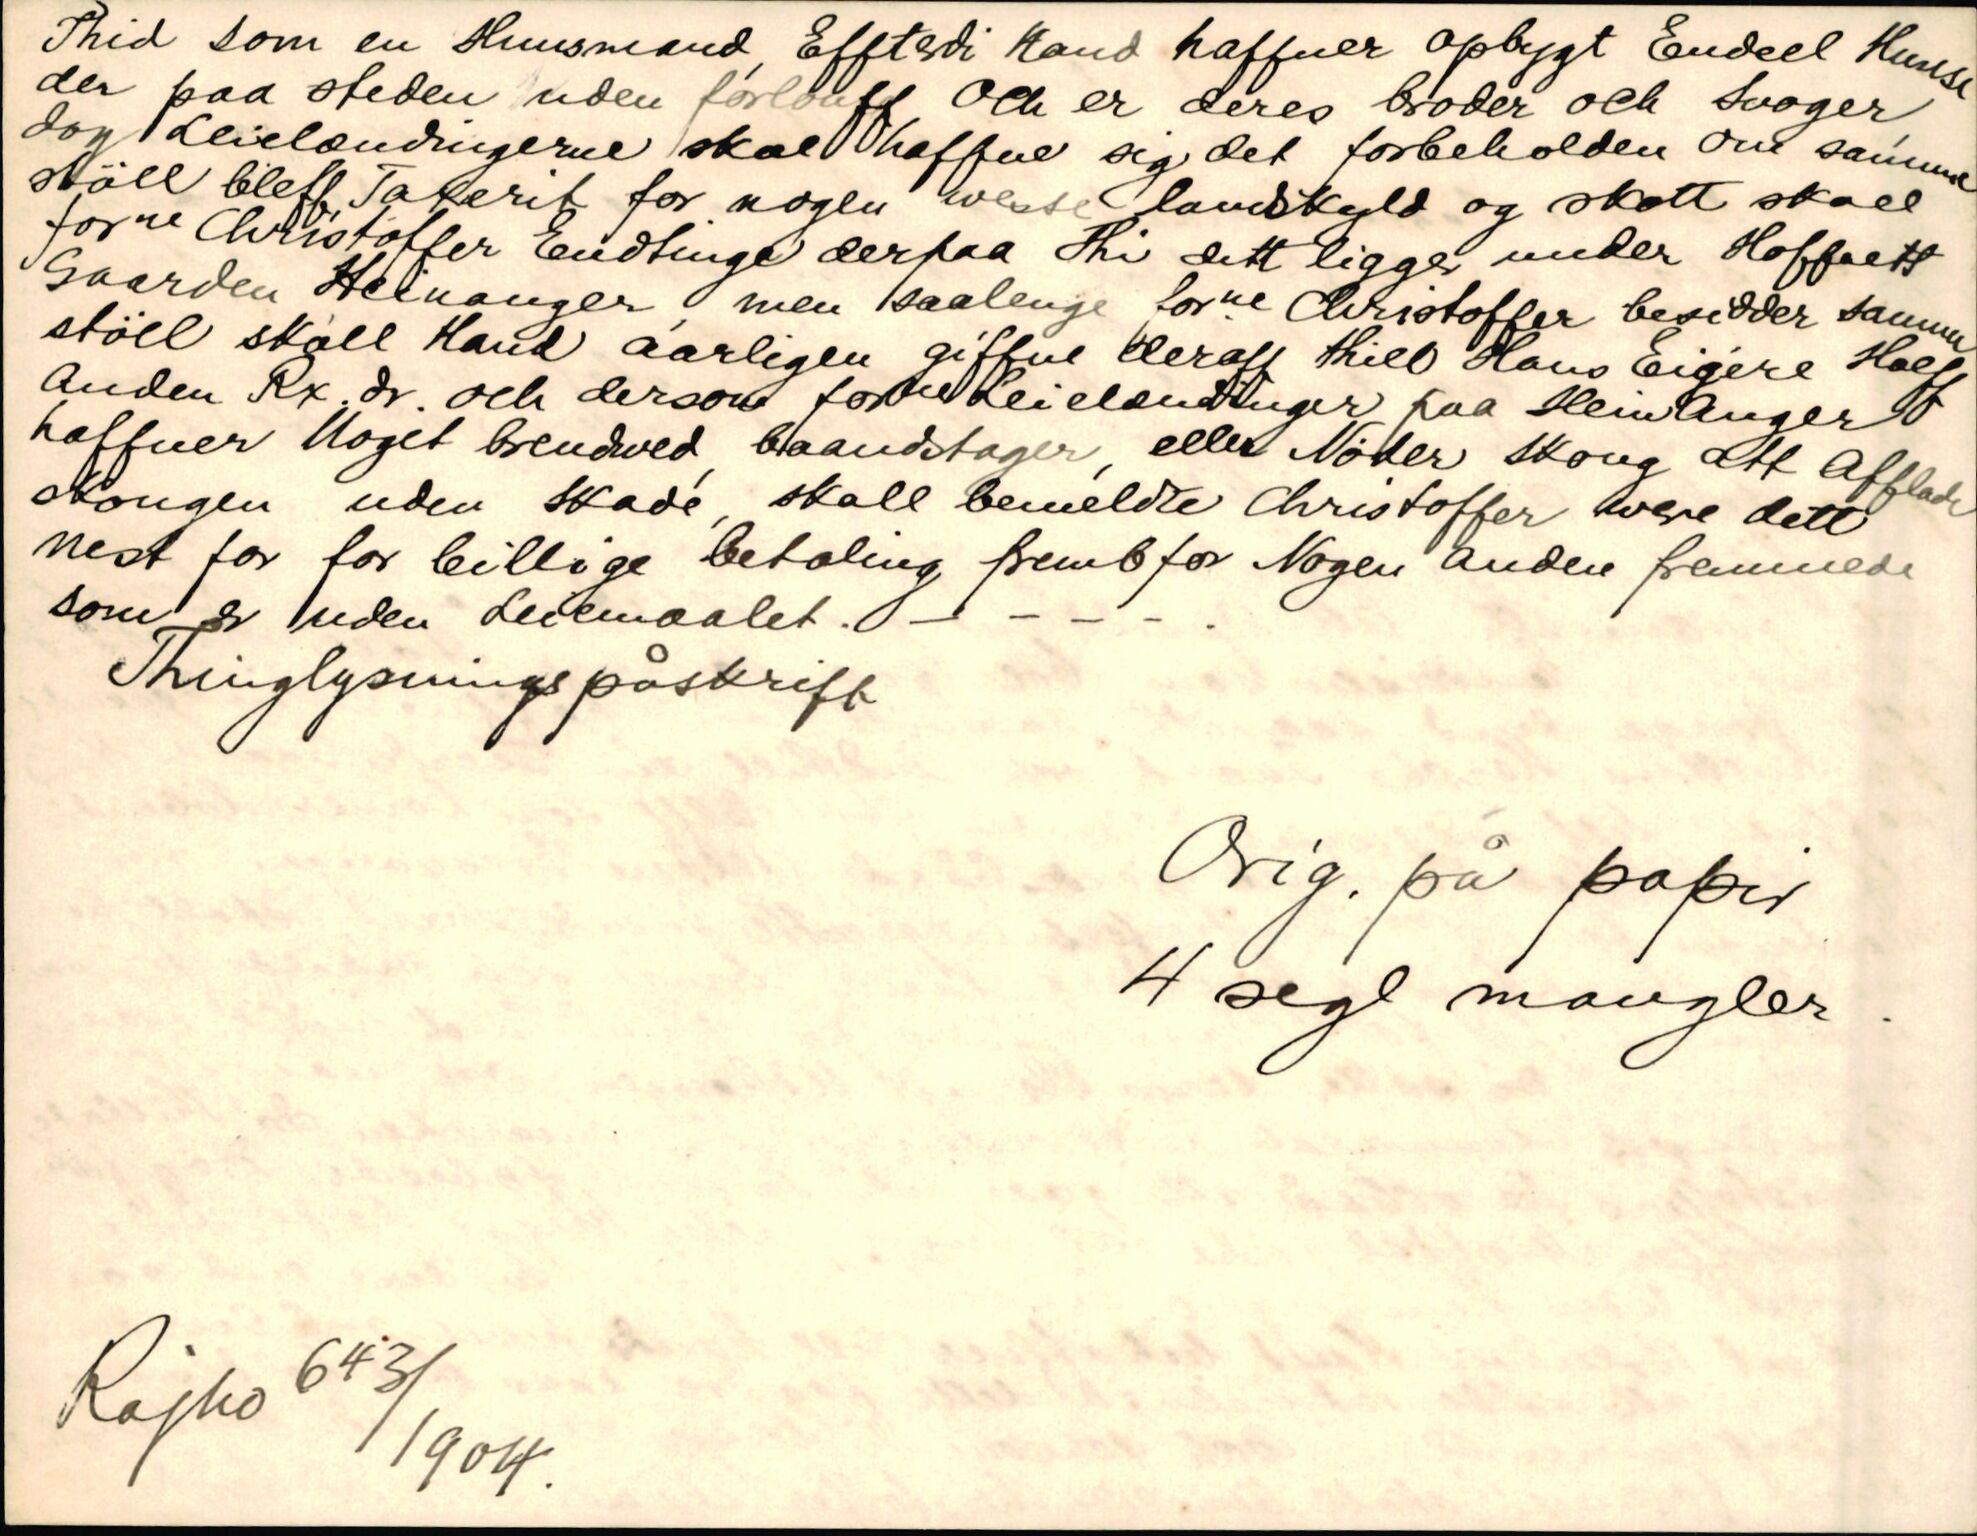 Thid som en Huusmand, Effterdi Hand haffuer opbygt Endeel Huuse
der paa steden uden forlouff Och er deres broder och Suoger
dog Leielændingerne skal haffue sig det forbeholden om samme
stöll bleff Taxerit for nogen wesse landskyld og skatt skall
forne Christoffer Endtinge derpaa Thi dett ligger under Hoffuett
Gaarden Heinanger, men saalenge forne Christoffer besidder samme
stöll skall Hand aarligen giffue deraff thill Hans Eigere Halff
Anden Rx. dr. och dersom forne Leielændinger paa Heinanger
haffuer Noget brendwed, baandstager, eller Nöder Skoug att Afflade
skougen uden Skade, skall bemeldte Christoffer were dett
nest for for billige betaling fremb for Nogen Anden fremmede
som er uden Leiemaalet. — – – – .
Thinglysnings påskrift
Orig. på papir
4 segl mangler.
643/1904.